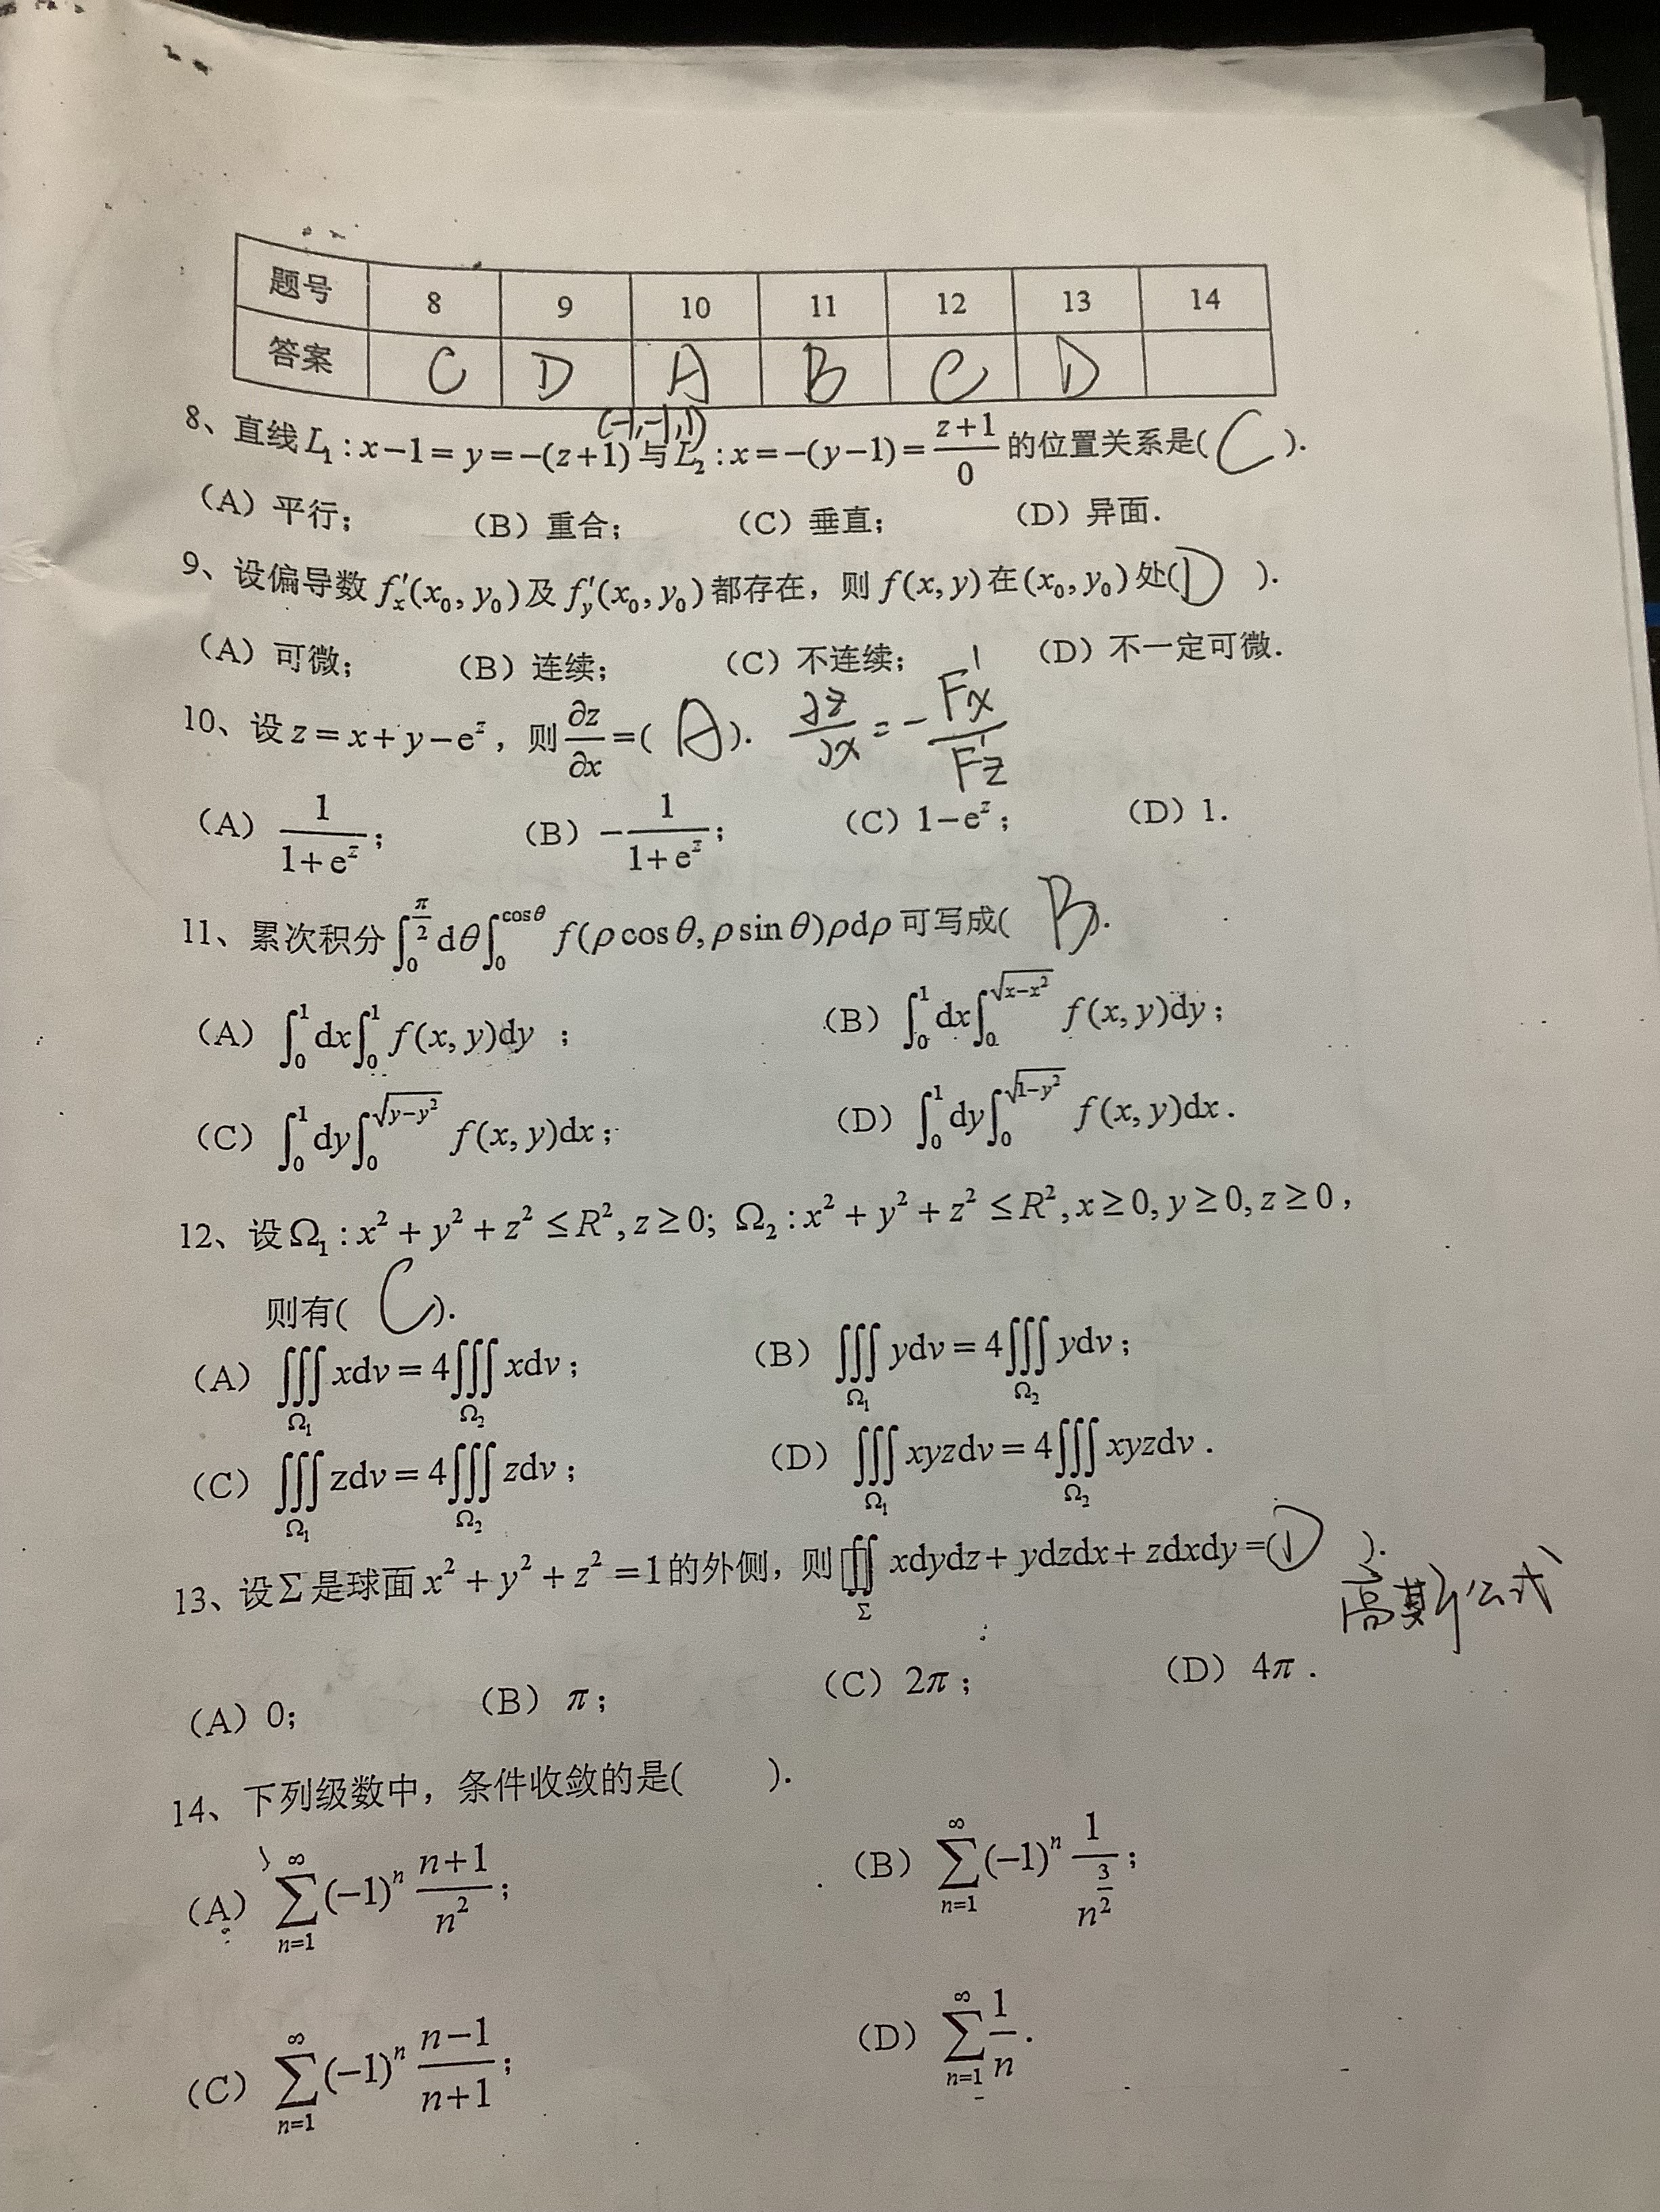 题号 8 9 10 11 12 13 14
答案 C D A B C D
(-1,-1,1)
8、直线 L₁ : x−1 = y = −(z+1) 与 L₂ : x = −(y−1) = (z+1)/0 的位置关系是( C ).
(A) 平行; (B) 重合; (C) 垂直; (D) 异面.
9、设偏导数 f′ₓ(x₀, y₀) 及 f′ᵧ(x₀, y₀) 都存在，则 f(x, y) 在 (x₀, y₀) 处( D ).
(A) 可微; (B) 连续; (C) 不连续; (D) 不一定可微.
10、设 z = x + y − e^z，则 ∂z/∂x = ( A ). ∂z/∂x = − F′x/F′z
(A) 1/(1+e^z); (B) −1/(1+e^z); (C) 1−e^z; (D) 1.
11、累次积分 ∫₀^(π/2) dθ ∫₀^(cosθ) f(ρcosθ, ρsinθ)ρdρ 可写成( B ).
(A) ∫₀¹ dx ∫₀¹ f(x, y)dy ; (B) ∫₀¹ dx ∫₀^√(x−x²) f(x, y)dy ;
(C) ∫₀¹ dy ∫₀^√(y−y²) f(x, y)dx ; (D) ∫₀¹ dy ∫₀^√(1−y²) f(x, y)dx .
12、设 Ω₁ : x² + y² + z² ≤ R², z ≥ 0; Ω₂ : x² + y² + z² ≤ R², x ≥ 0, y ≥ 0, z ≥ 0，
则有( C ).
(A) ∭_Ω₁ xdv = 4∭_Ω₂ xdv ; (B) ∭_Ω₁ ydv = 4∭_Ω₂ ydv ;
(C) ∭_Ω₁ zdv = 4∭_Ω₂ zdv ; (D) ∭_Ω₁ xyzdv = 4∭_Ω₂ xyzdv .
13、设 Σ 是球面 x² + y² + z² = 1 的外侧，则 ∯_Σ xdydz + ydzdx + zdxdy = ( D ).
高斯公式
(A) 0; (B) π ; (C) 2π ; (D) 4π .
14、下列级数中，条件收敛的是( ).
(A) ∑_(n=1)^∞ (−1)^n (n+1)/n² ; (B) ∑_(n=1)^∞ (−1)^n 1/n^(3/2) ;
(C) ∑_(n=1)^∞ (−1)^n (n−1)/(n+1) ; (D) ∑_(n=1)^∞ 1/n .